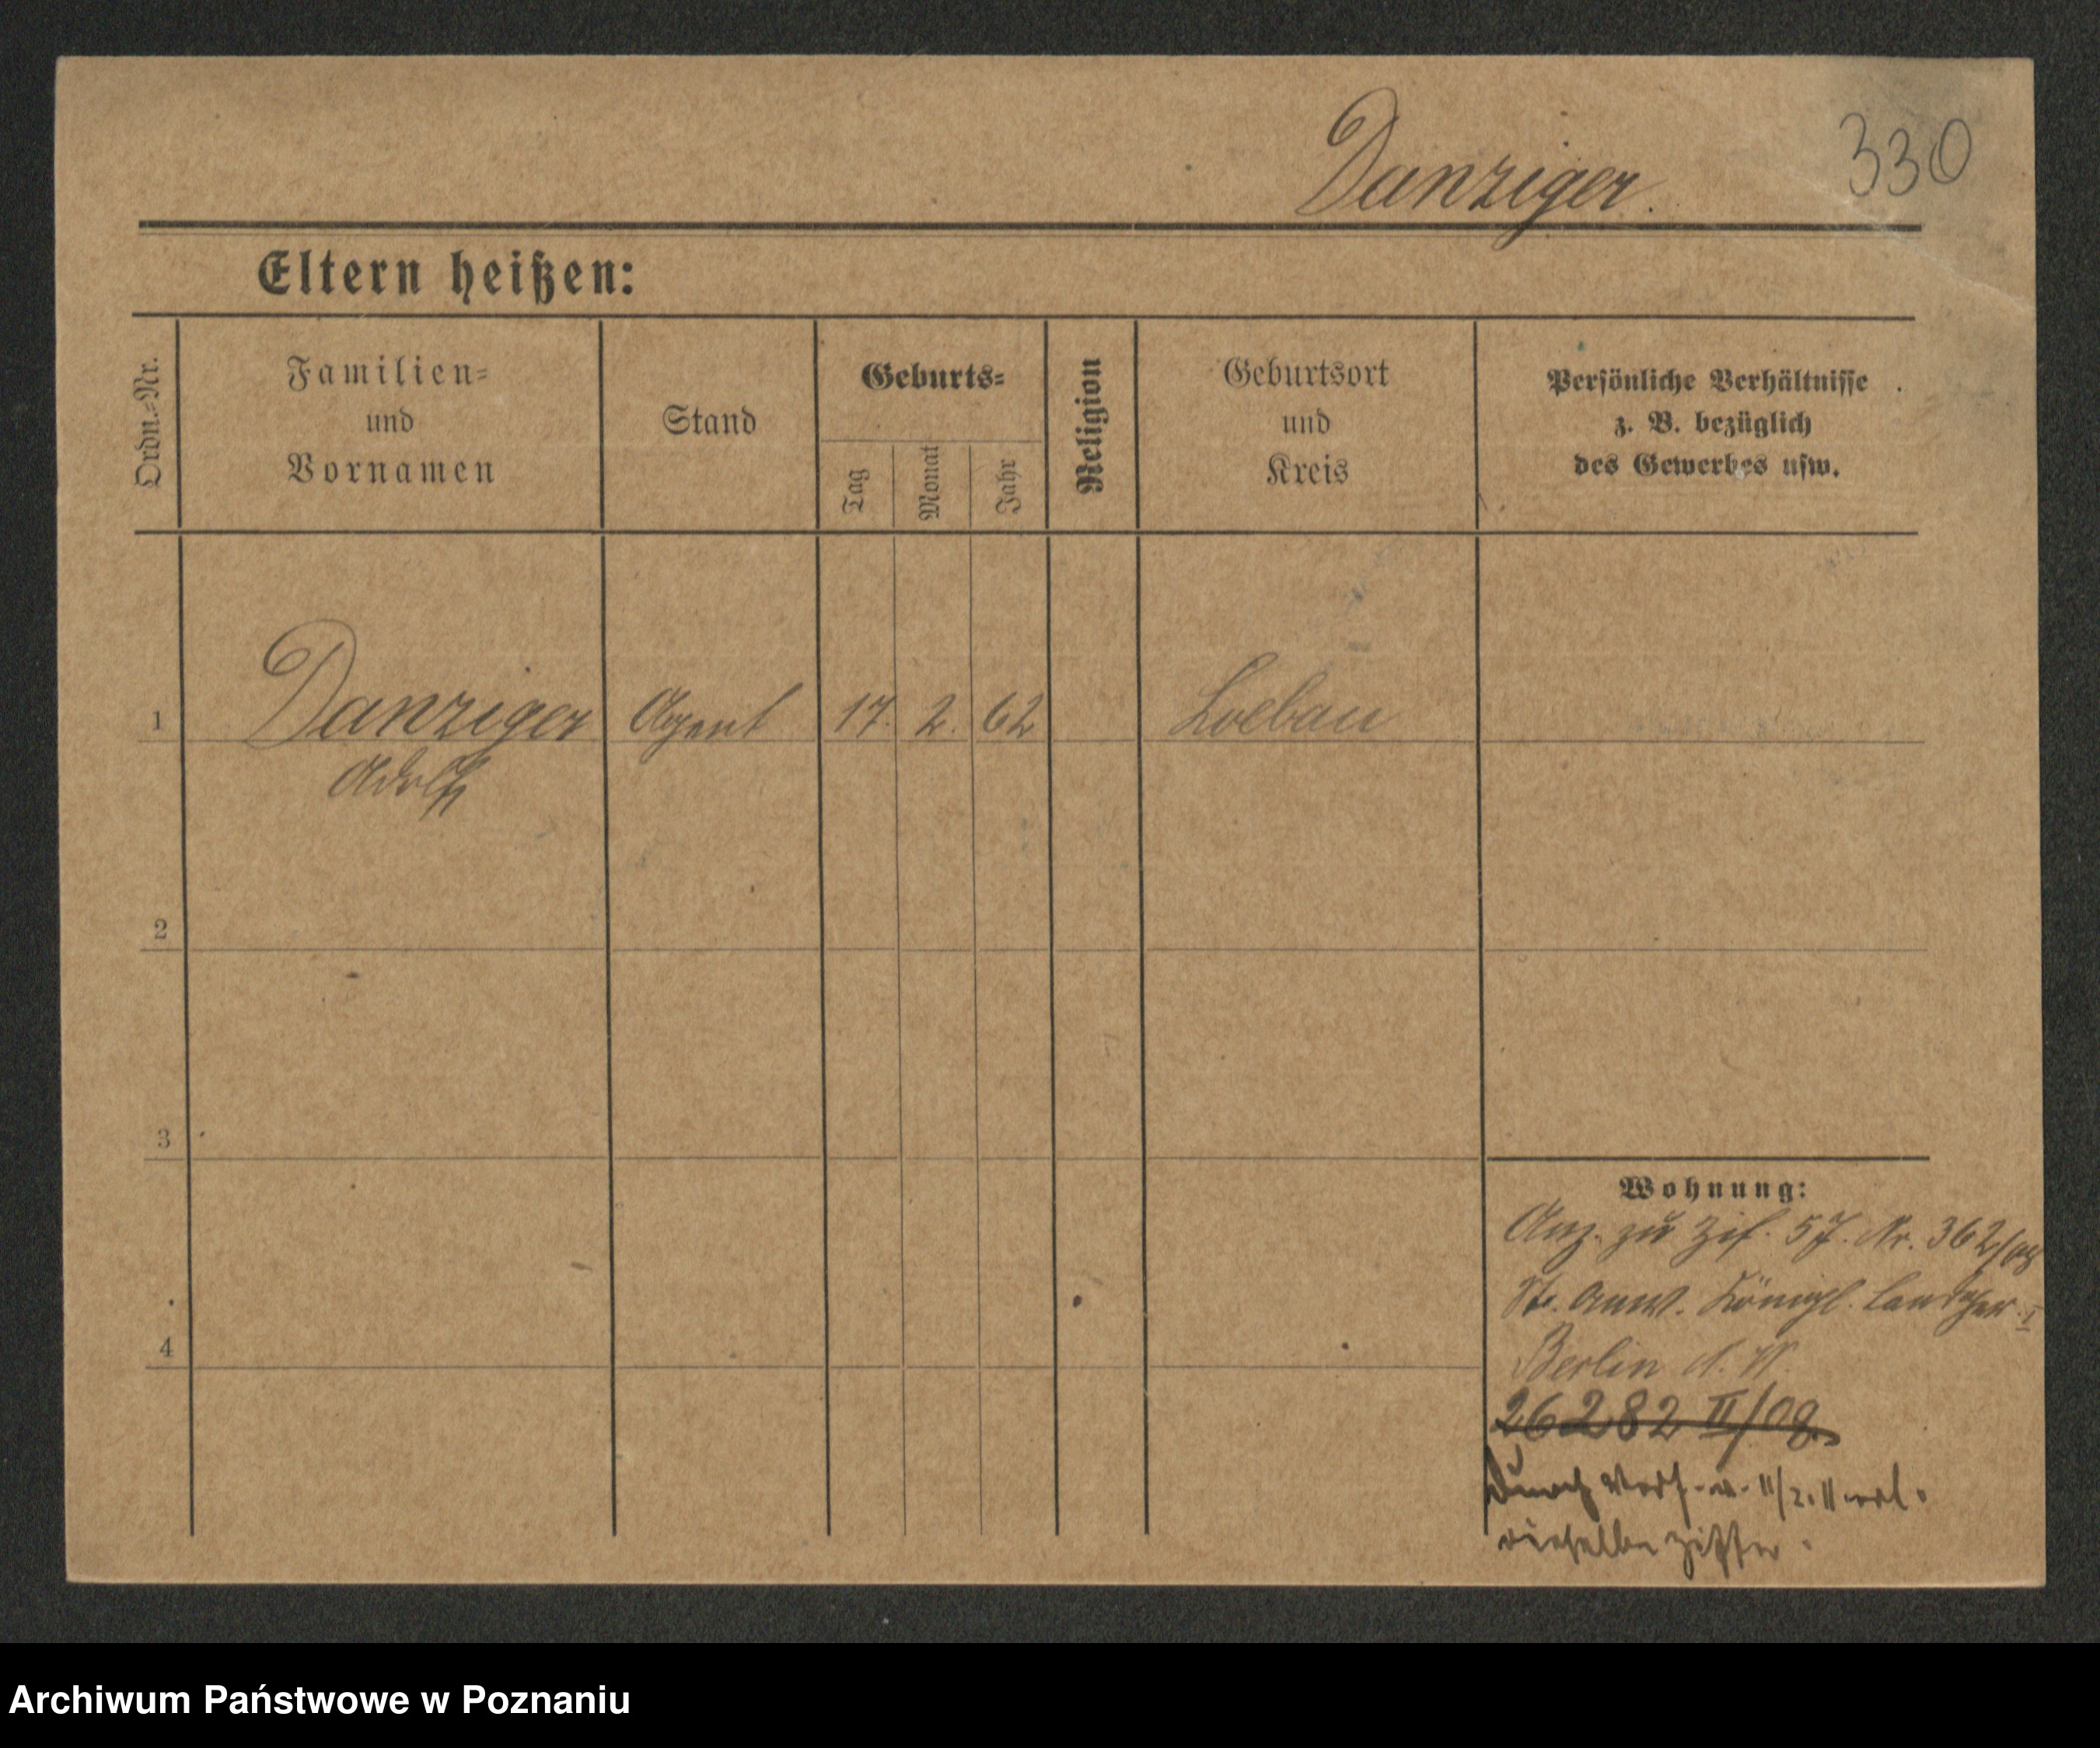 Danziger.
330
Eltern heißen:
Ordn.-Nr.
Familien-
und
Vornamen
Stand
Geburts-
Tag
Monat
Jahr
Religion
Geburtsort
und
Kreis
Persönliche Verhältnisse
z. B. bezüglich
des Gewerbes usw.
1 Danziger Agent 17. 2. 62 Loebau
Adolf
2
3
4
Wohnung:
Anz. zu Zif. 57. Nr. 362/08
St. Anw. Königl. Landger. I
Berlin
26282 II/08
Durch Verf. v. 11/2. 11
dieselbe Ziffer.
Archiwum Państwowe w Poznaniu